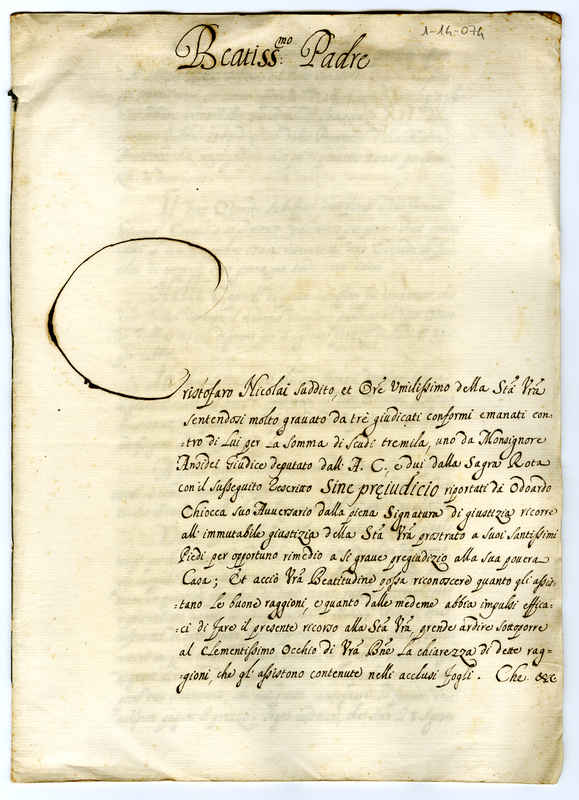 1-14-074
Beatiss:mo Padre
Cristofaro Nicolai suddito, et Ore Vmilissimo della Stà Vrà
sentendosi molto gravato da trè giudicati conformi emanati con=
=tro di Lui per La somma di scudi tremila, uno da Monsignore
Ansidei Giudice deputato dall' A. C., e dui dalla Sagra Rota
con il susseguito Rescritto Sine prejudicio riportati dà Odoardo
Chiocca suo Avversario dalla piena Signatura di giustizia ricorre
all' immutabile giustizia della Stà Vrà prostrato a suoi santissimi
Piedi per opportuno rimedio a si grave pregiudizio alla sua povera
Casa; Et acciò Vrà Beatitudine possa riconoscere quanto gli assis=
=tano le buone raggioni, e quanto dalle medeme abbia impulsi effica=
=ci di fare il presente ricorso alla Stà Vrà, prende ardire sottoporre
al Clementissimo Occhio di Vrà Bne La chiarezza di dette rag=
=gioni, che gl' assistono contenute nelli acclusi fogli. Che &c